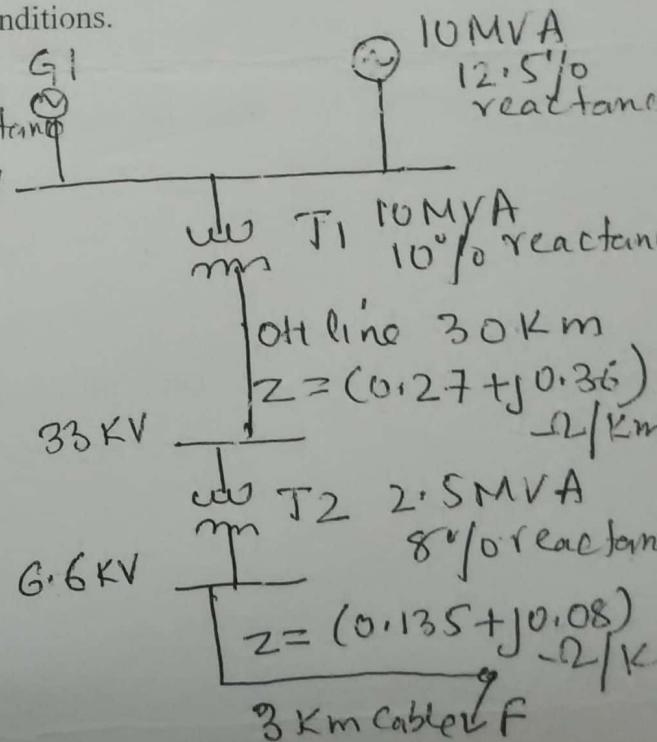 nditions.
G1
10 MVA
12.5%
reactanc
T1 10 MVA
10% reactan
OH line 30 Km
Z = (0.27 + j0.36)
Ω/Km
33 KV
T2 2.5 MVA
8% reactan
6.6 KV
Z = (0.135 + j0.08)
Ω/K
3 Km Cable F